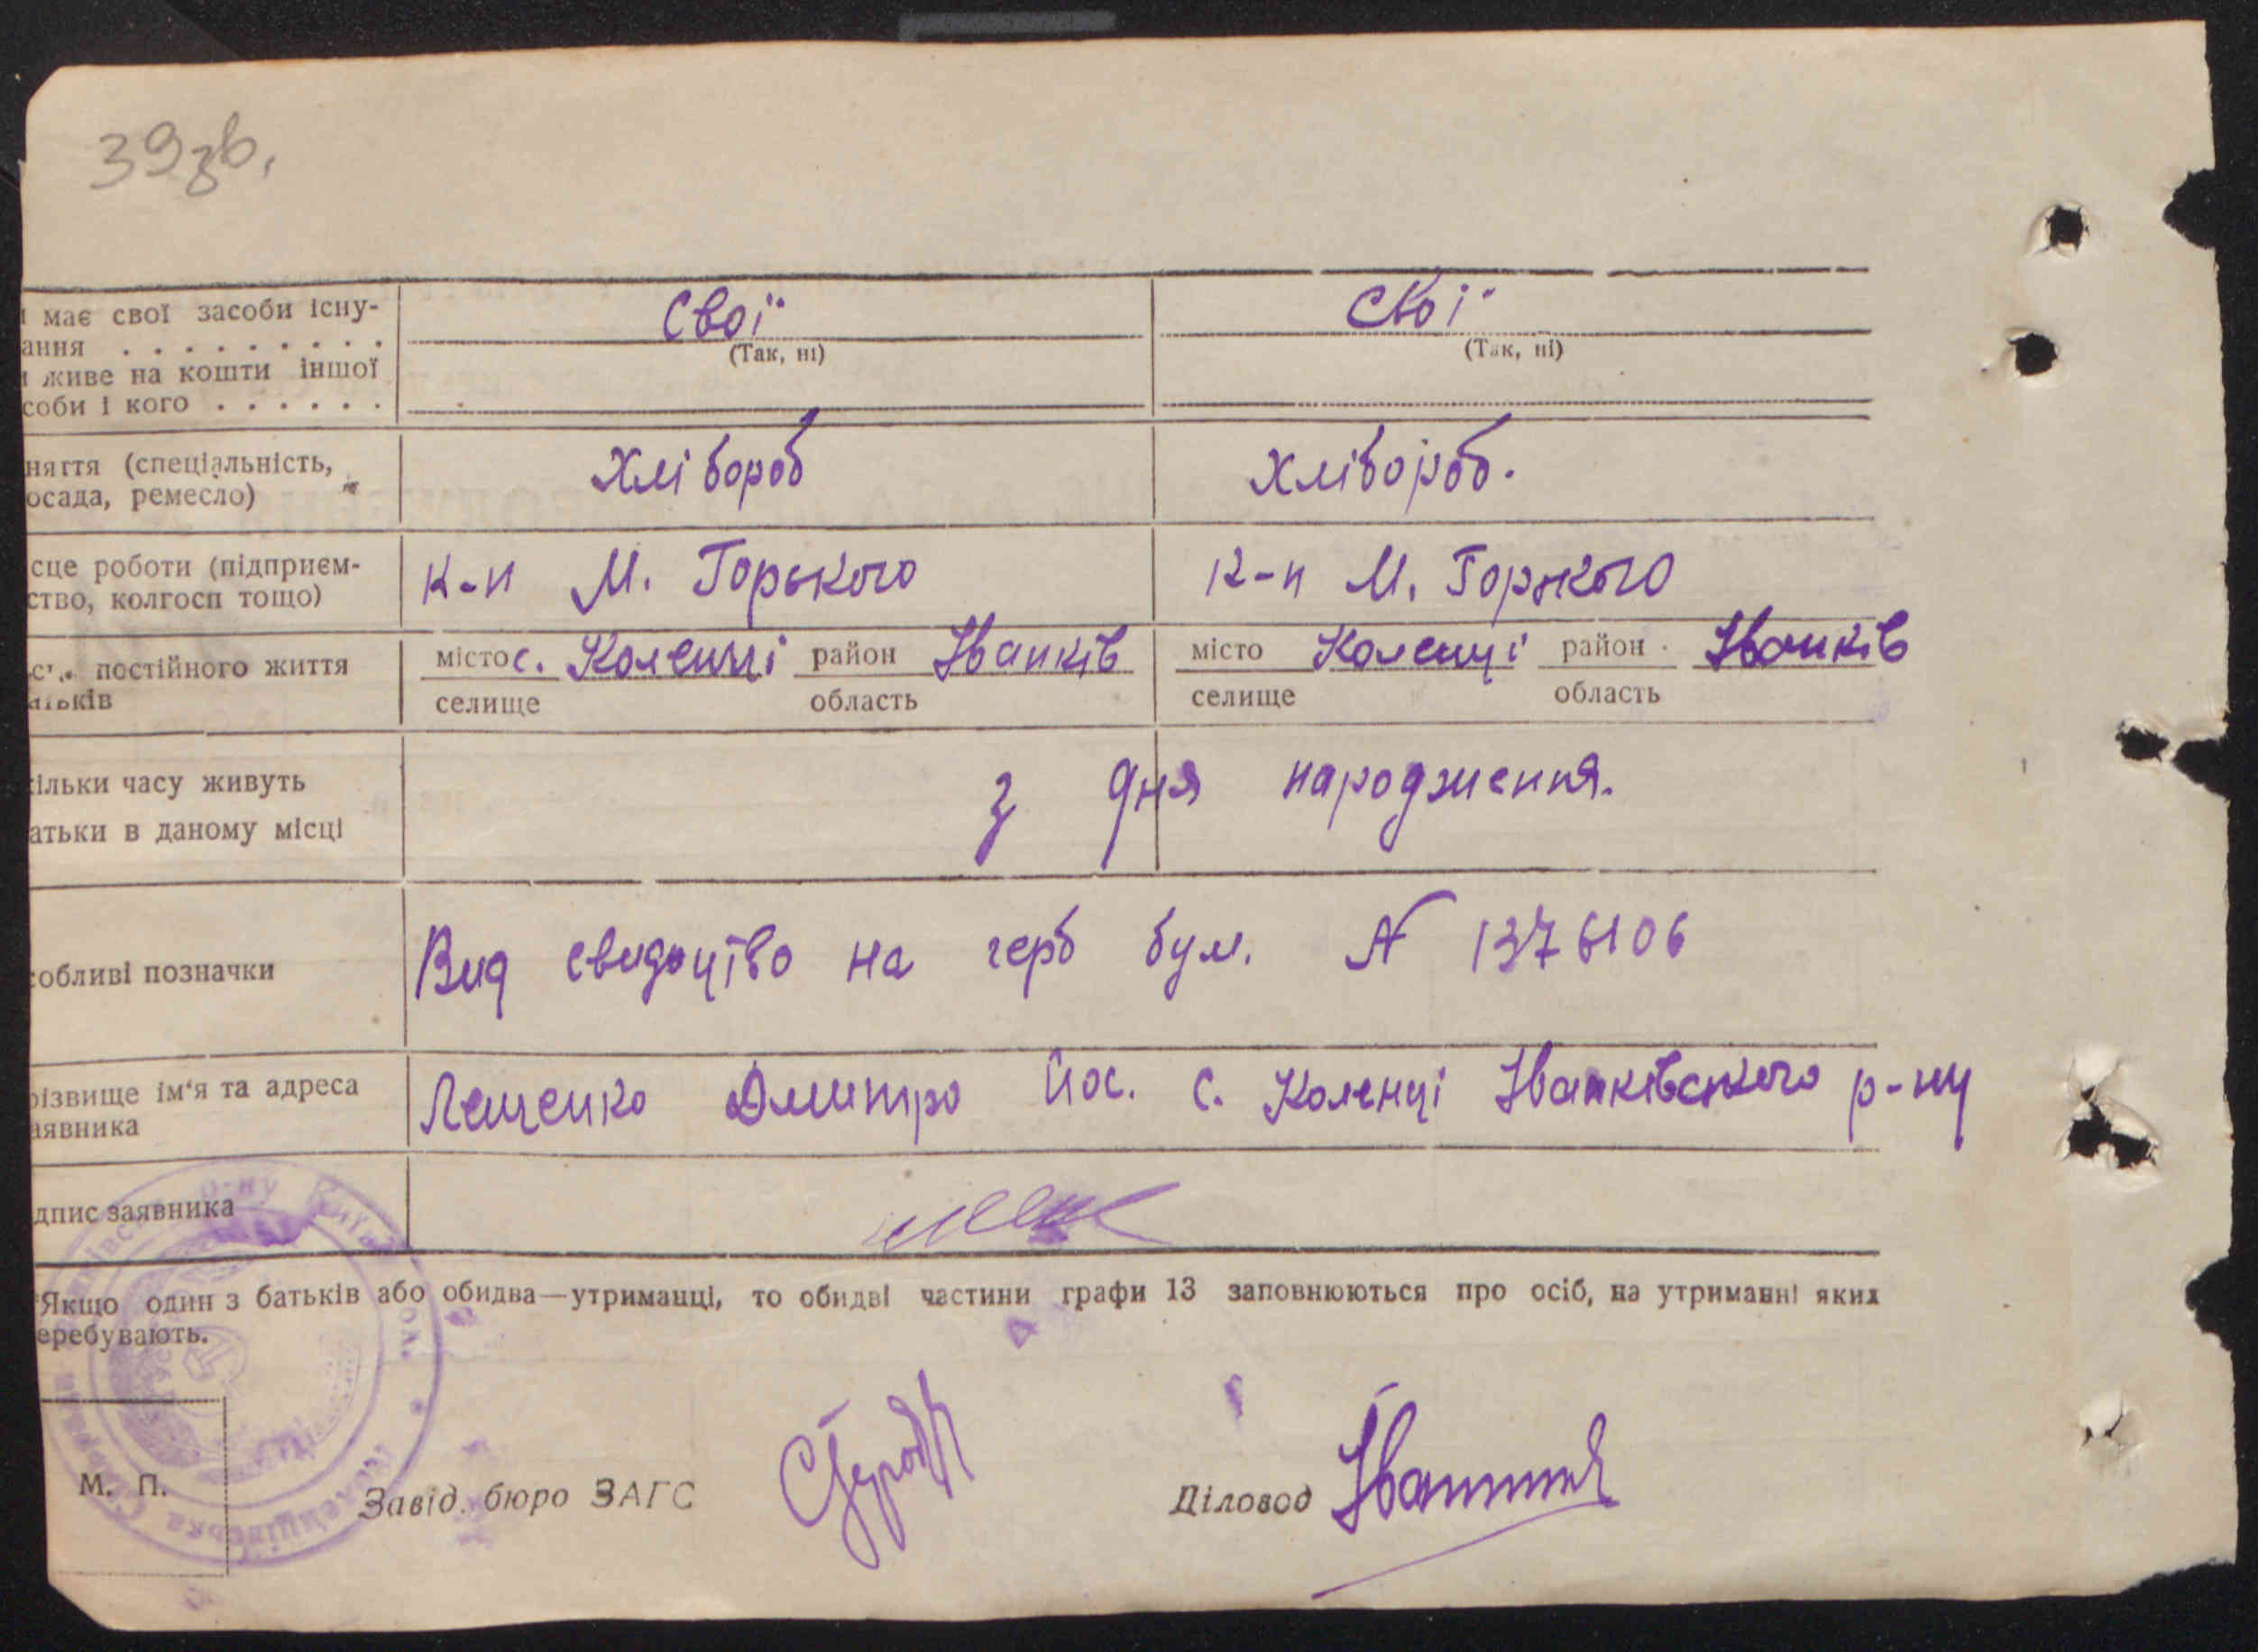 39зв.
має свої засоби існу- Свої Свої
ання . . . . . . . . . (Так, ні) (Так, ні)
живе на кошти іншої
соби і кого . . . . . .
няття (спеціальність, Хлібороб Хлібороб.
осада, ремесло)
сце роботи (підприєм- к-п М. Горького к-п М. Горького
ство, колгосп тощо)
постійного життя місто с. Коленці район Іванків місто Коленці район Іванків
батьків селище область селище область
ільки часу живуть з дня народження.
атьки в даному місці
собливі позначки Вид свидоцтво на герб бум. № 1376106
різвище ім'я та адреса Лещенко Дмитро Йос. с. Коленці Іванківського р-ну
аявника
дпис заявника
Якщо один з батьків або обидва—утриманці, то обидві частини графи 13 заповнюються про осіб, на утриманні яких
еребувають.
М. П. Завід. бюро ЗАГС Діловод